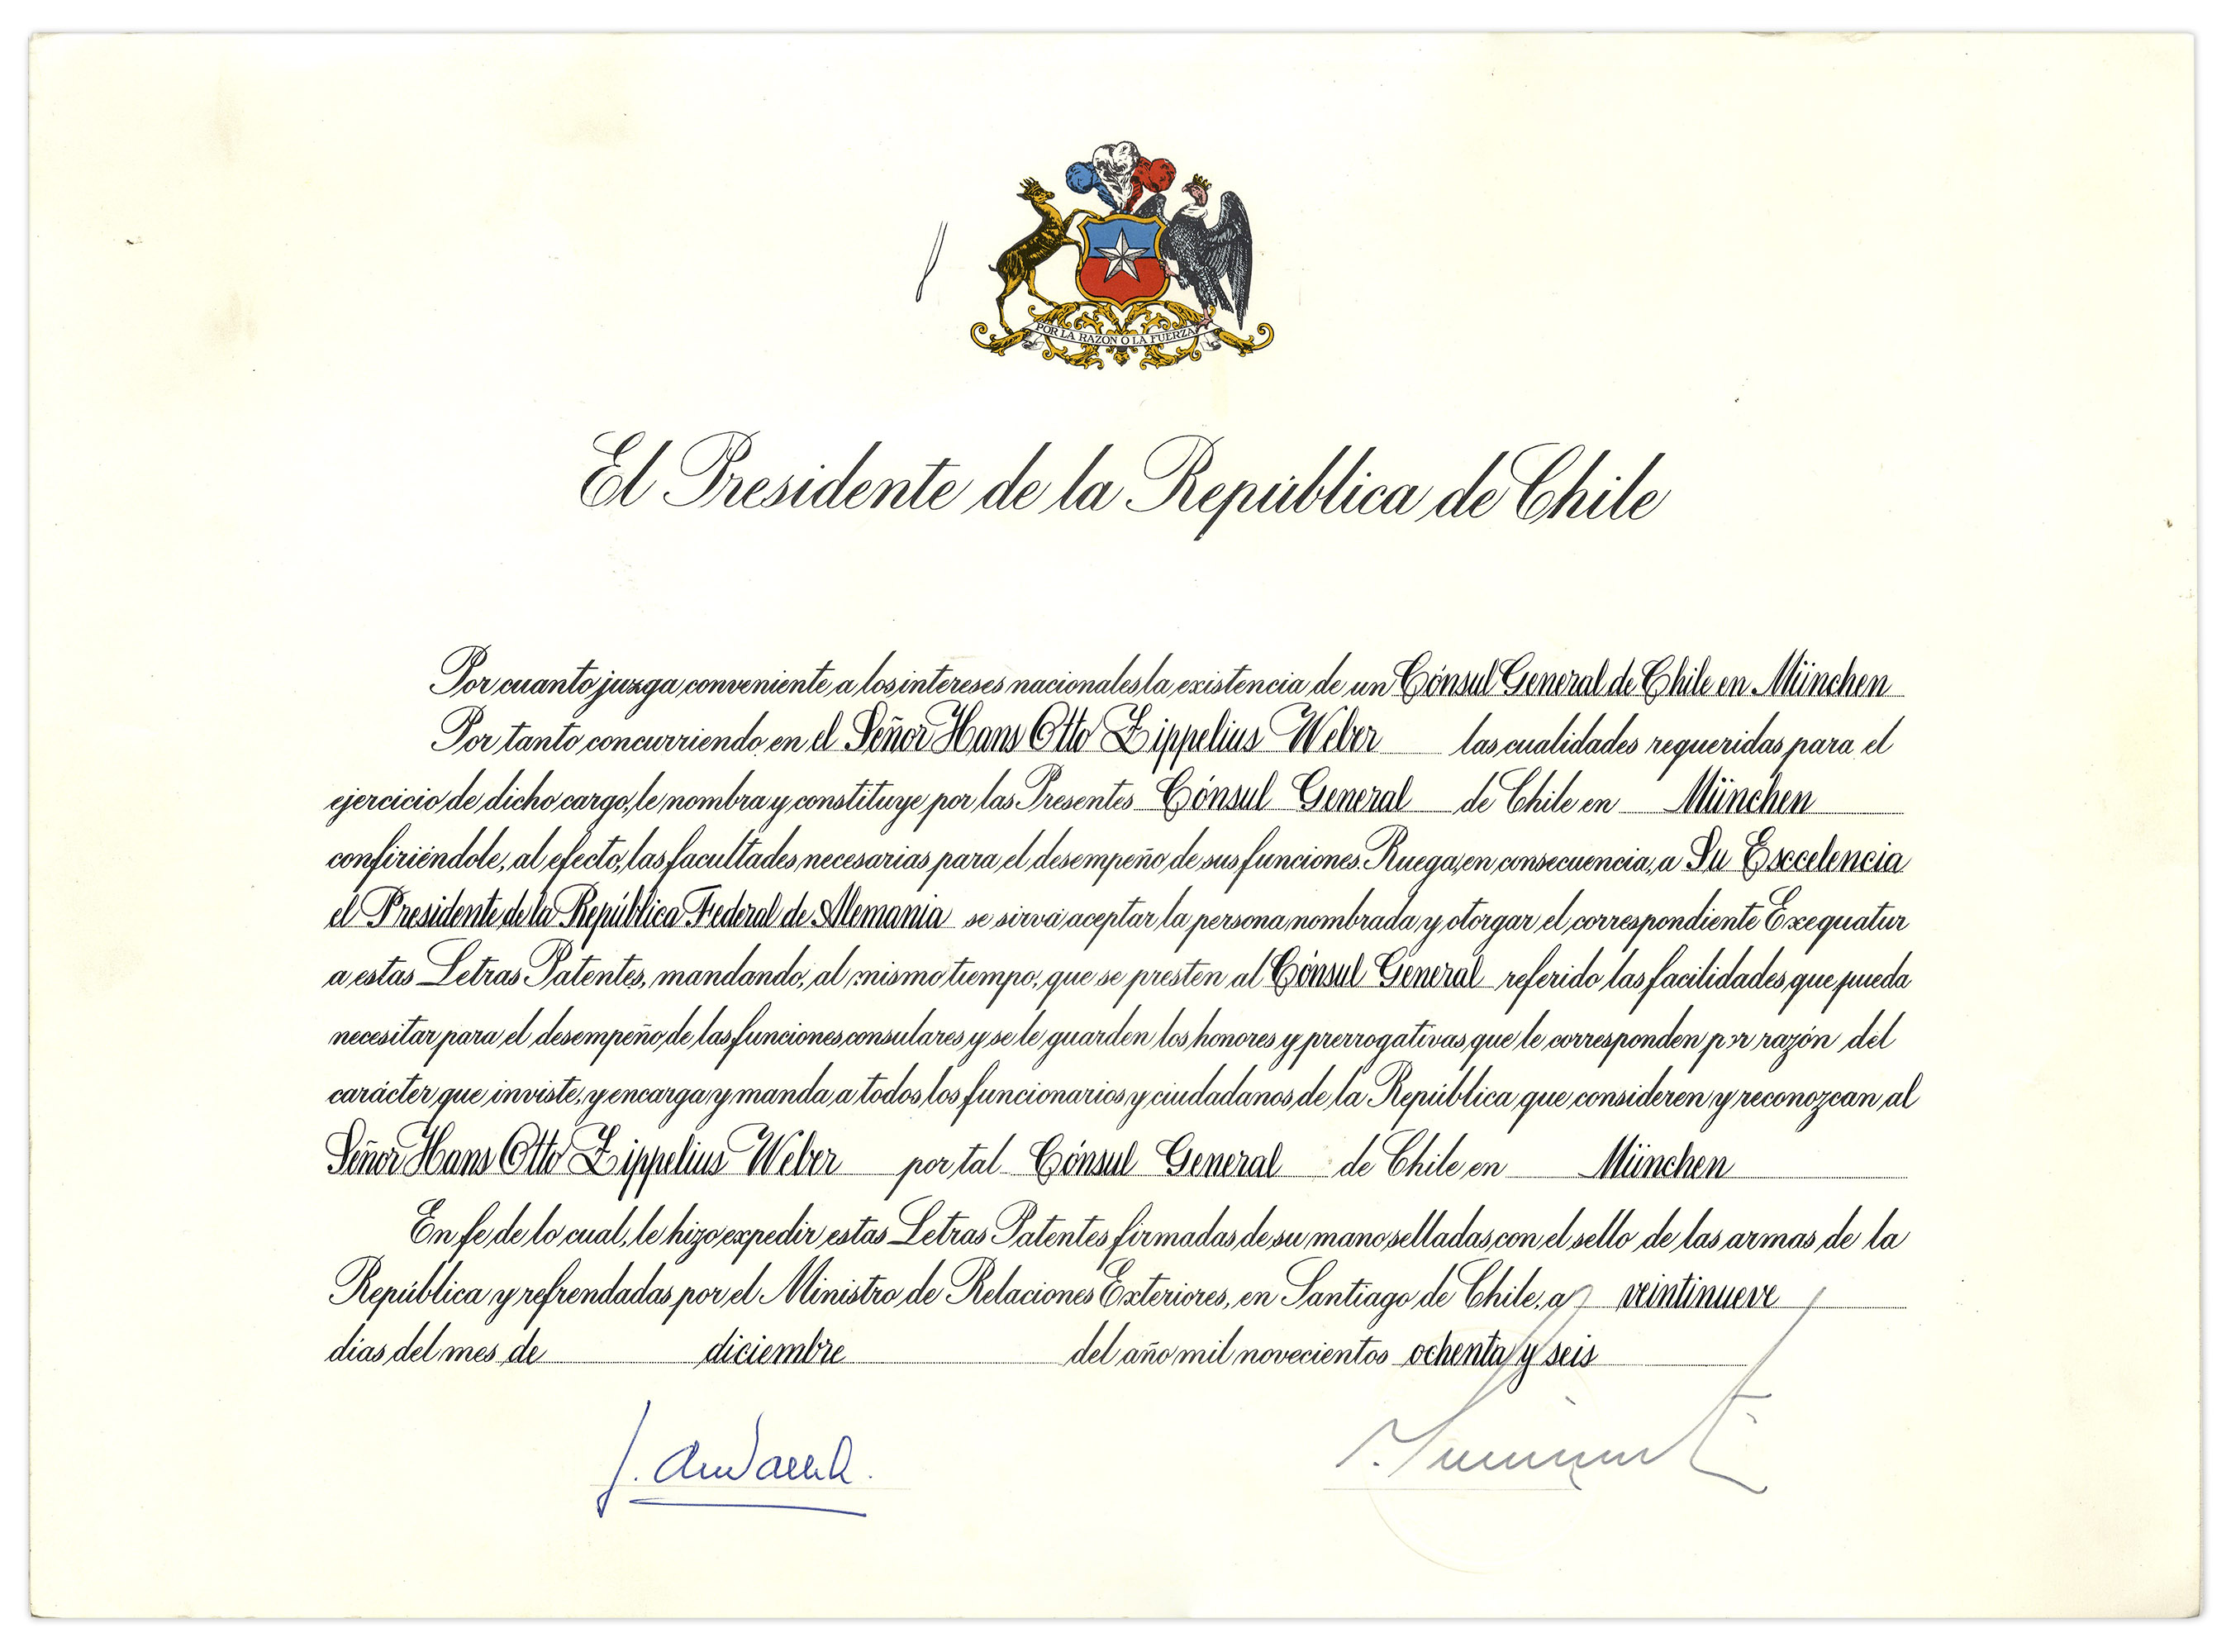 POR LA RAZON O LA FUERZA
El Presidente de la República de Chile
Por cuanto juzga conveniente a los intereses nacionales la existencia de un Cónsul General de Chile en München
Por tanto concurriendo en el Señor Hans Otto Zippelius Weber las cualidades requeridas para el
ejercicio de dicho cargo, le nombra y constituye por las Presentes Cónsul General de Chile en München
confiriéndole, al efecto, las facultades necesarias para el desempeño de sus funciones. Ruega, en consecuencia, a Su Excelencia
el Presidente de la República Federal de Alemania se sirva aceptar la persona nombrada y otorgar el correspondiente Exequatur
a estas Letras Patentes, mandando, al mismo tiempo, que se presten al Cónsul General referido las facilidades que pueda
necesitar para el desempeño de las funciones consulares y se le guarden los honores y prerrogativas que le corresponden por razón del
carácter que inviste, y encarga y manda a todos los funcionarios y ciudadanos de la República que consideren y reconozcan al
Señor Hans Otto Zippelius Weber por tal Cónsul General de Chile en München
En fe de lo cual, le hizo expedir estas Letras Patentes firmadas de su mano, selladas con el sello de las armas de la
República y refrendadas por el Ministro de Relaciones Exteriores, en Santiago de Chile, a veintinueve
días del mes de diciembre del año mil novecientos ochenta y seis